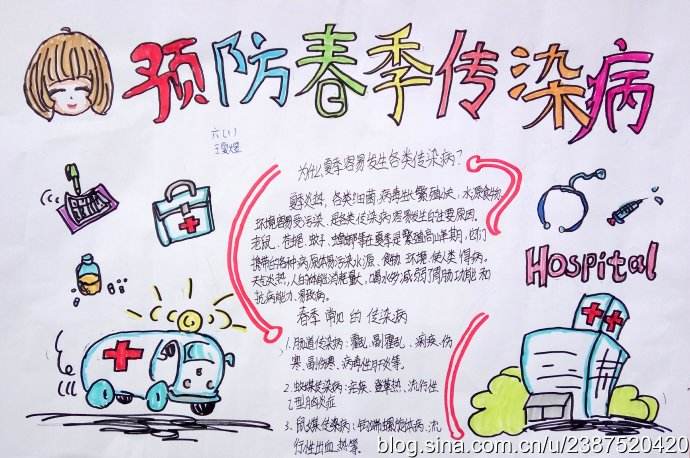 预防春季传染病
六(1)
为什么夏季容易发生各类传染病?
夏季炎热,各类细菌、病毒生长繁殖快,水源食物
环境容易受污染,是各类传染病容易发生的主要原因。
老鼠、苍蝇、蚊子、蟑螂等在夏季是繁殖高峰期,它们
携带的各种病原体易污染水源、食物、环境,使人类得病。
天气炎热,人的体能消耗量大,喝水多,减弱了胃肠功能和
抗病能力,易致病。
春季常见的传染病
1. 肠道传染病:霍乱、副霍乱、痢疾、伤
寒、副伤寒、病毒性肝炎等。
2. 蚊媒传染病:疟疾、登革热、流行性
乙型脑炎症
3. 鼠媒传染病:钩端螺旋体病、流
行性出血热等。
Hospital
blog.sina.com.cn/u/2387520420